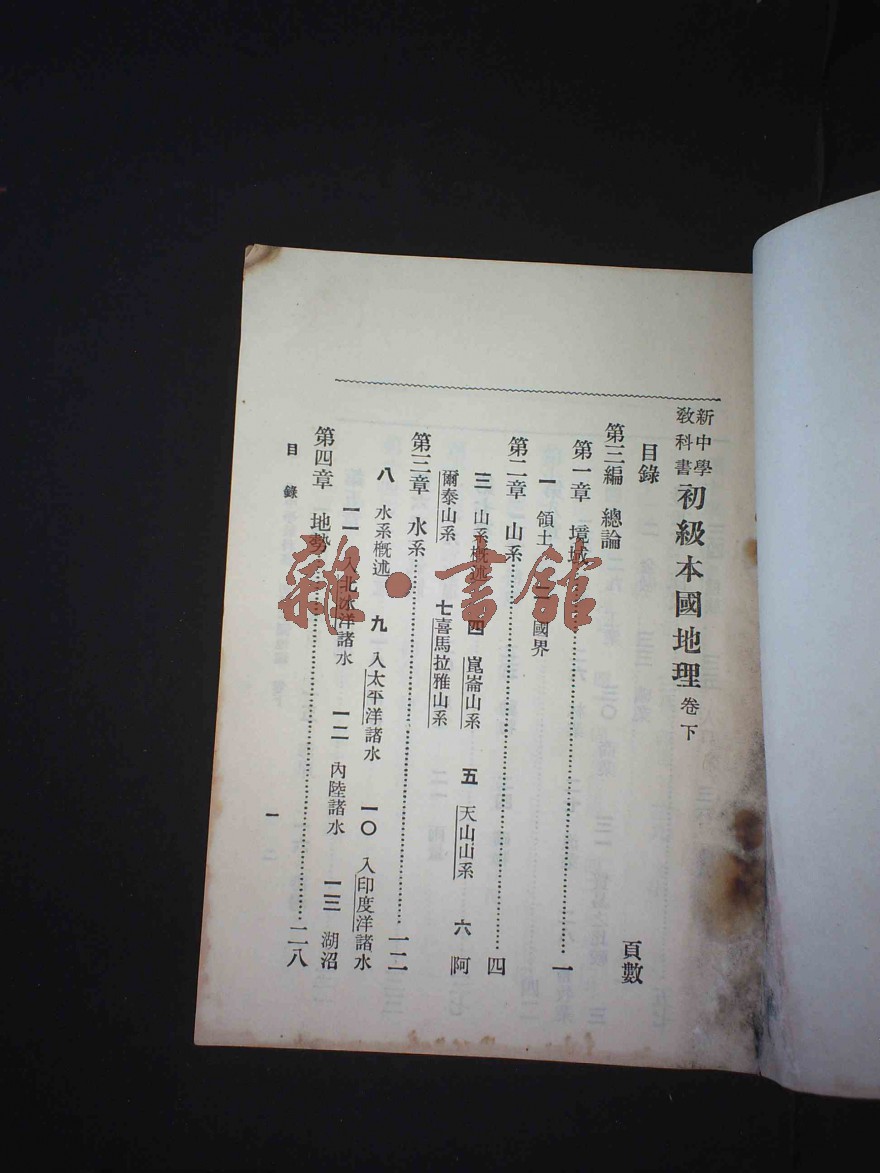 新中學教科書 初級本國地理 卷下
目錄 頁數
第三編 總論
第一章 境域……一
一 領土 二 國界
第二章 山系……四
三 山系概述 四 崑崙山系 五 天山山系 六 阿
爾泰山系 七 喜馬拉雅山系
第三章 水系……一二
八 水系概述 九 入太平洋諸水 一〇 入印度洋諸水
一一 入北冰洋諸水 一二 內陸諸水 一三 湖沼
第四章 地勢……二八
目錄 一
雜·書館